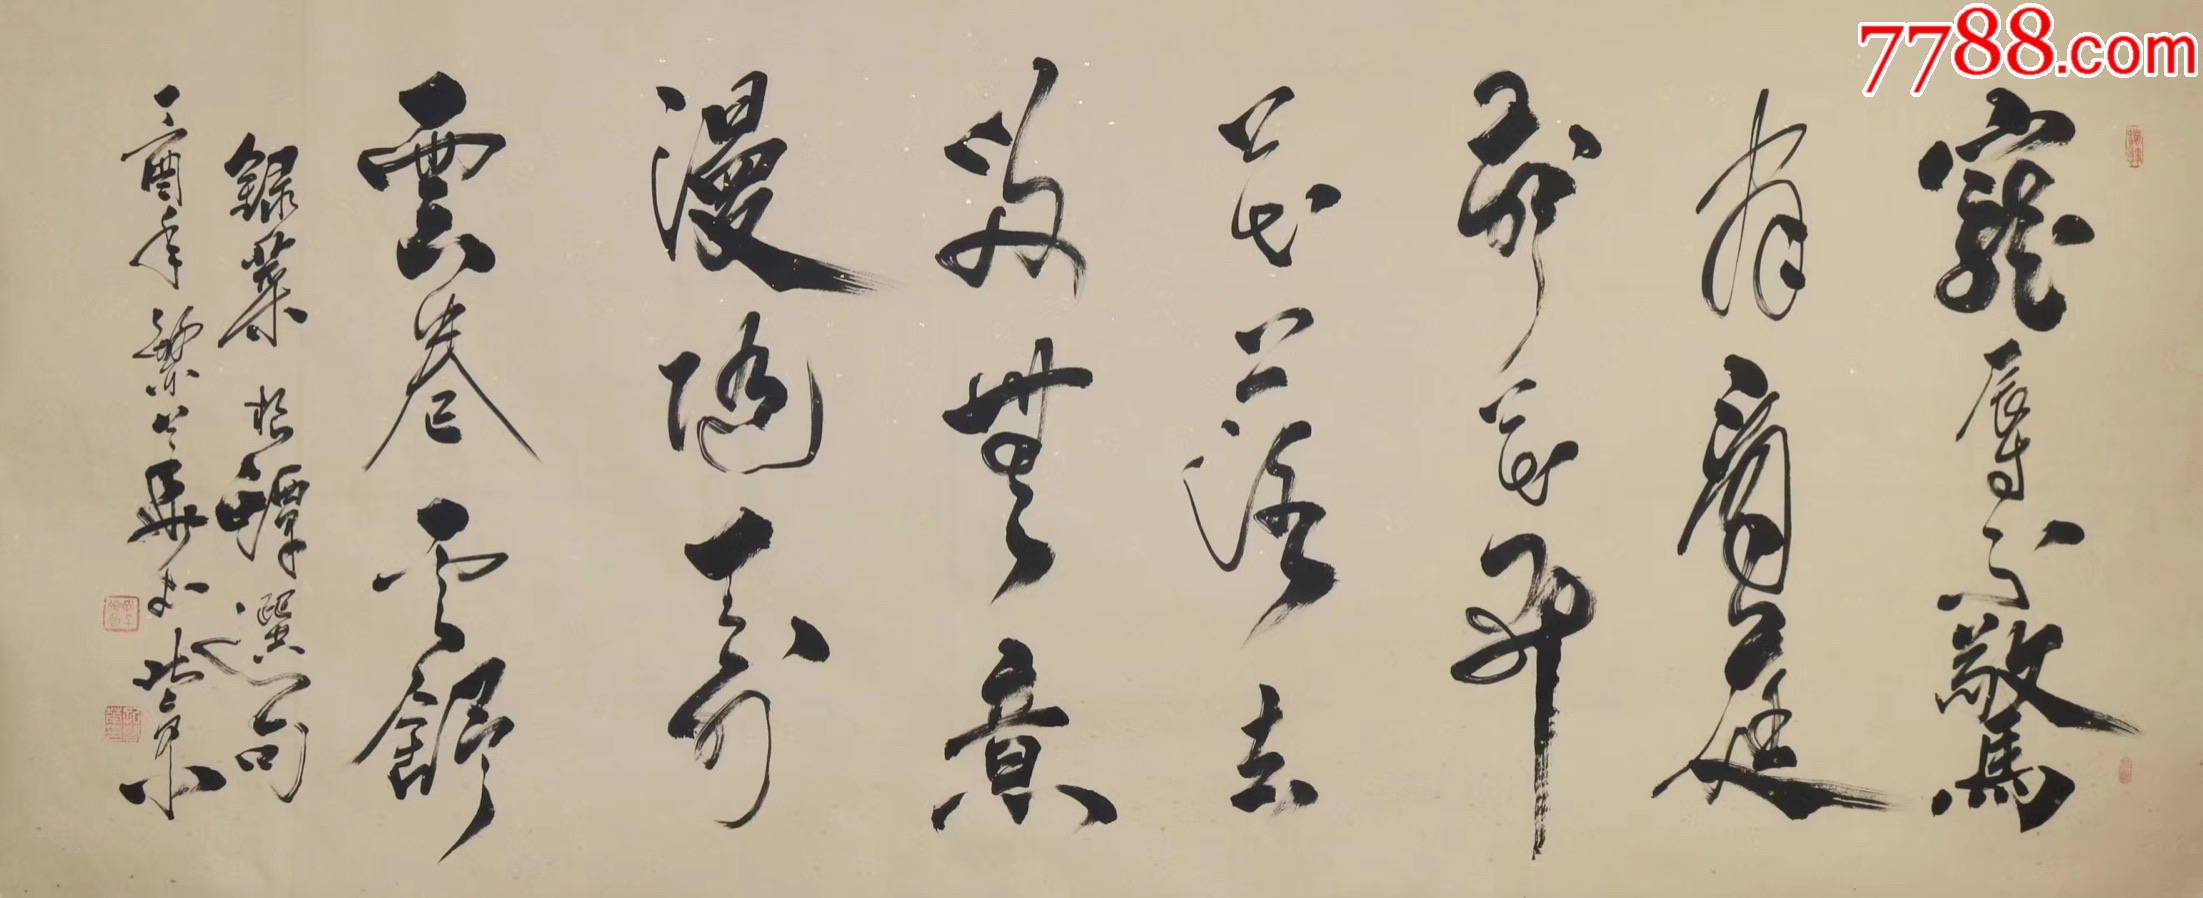 寵辱不驚
看庭
前花開
花落去
留無意
漫隨天外
雲卷云舒
錄菜根譚選句
辛酉年 書北京
7788.com